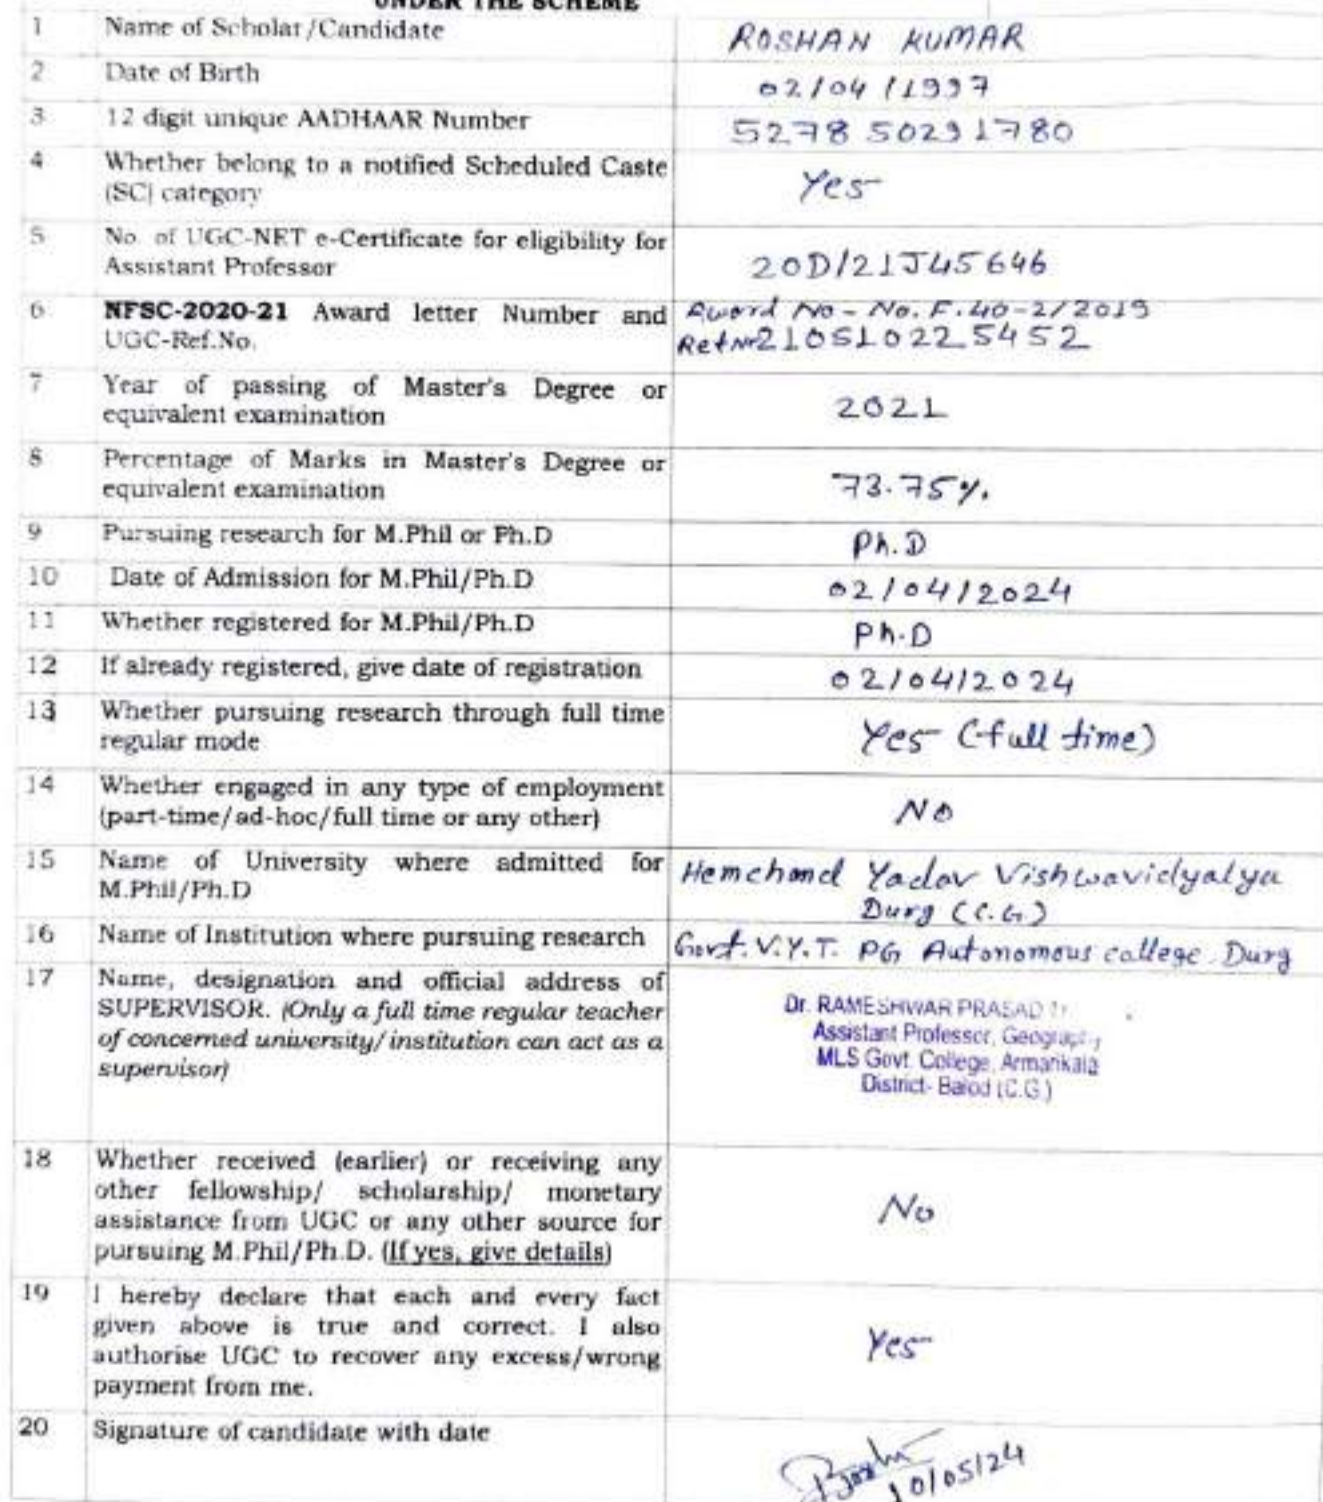 UNDER THE SCHEME
1 Name of Scholar/Candidate ROSHAN KUMAR
2 Date of Birth 02/04/1997
3 12 digit unique AADHAAR Number 5278 50291780
4 Whether belong to a notified Scheduled Caste Yes
(SC) category
5 No. of UGC-NET e-Certificate for eligibility for 20D/21J45646
Assistant Professor
6 NFSC-2020-21 Award letter Number and Award No - No. F. 40-2/2019
UGC-Ref.No. Ref No 210510225452
7 Year of passing of Master's Degree or 2021
equivalent examination
8 Percentage of Marks in Master's Degree or 73.75%
equivalent examination
9 Pursuing research for M.Phil or Ph.D Ph.D
10 Date of Admission for M.Phil/Ph.D 02/04/2024
11 Whether registered for M.Phil/Ph.D Ph.D
12 If already registered, give date of registration 02/04/2024
13 Whether pursuing research through full time Yes (full time)
regular mode
14 Whether engaged in any type of employment NO
(part-time/ad-hoc/full time or any other)
15 Name of University where admitted for Hemchand Yadav Vishwavidyalya
M.Phil/Ph.D Durg (C.G.)
16 Name of Institution where pursuing research Govt. V.Y.T. PG Autonomous college Durg
17 Name, designation and official address of Dr. RAMESHWAR PRASAD
SUPERVISOR. (Only a full time regular teacher Assistant Professor, Geography
of concerned university/institution can act as a MLS Govt. College, Armarikala
supervisor) District- Balod (C.G.)
18 Whether received (earlier) or receiving any
other fellowship/ scholarship/ monetary No
assistance from UGC or any other source for
pursuing M.Phil/Ph.D. (If yes, give details)
19 I hereby declare that each and every fact
given above is true and correct. I also Yes
authorise UGC to recover any excess/wrong
payment from me.
20 Signature of candidate with date
10/05/24